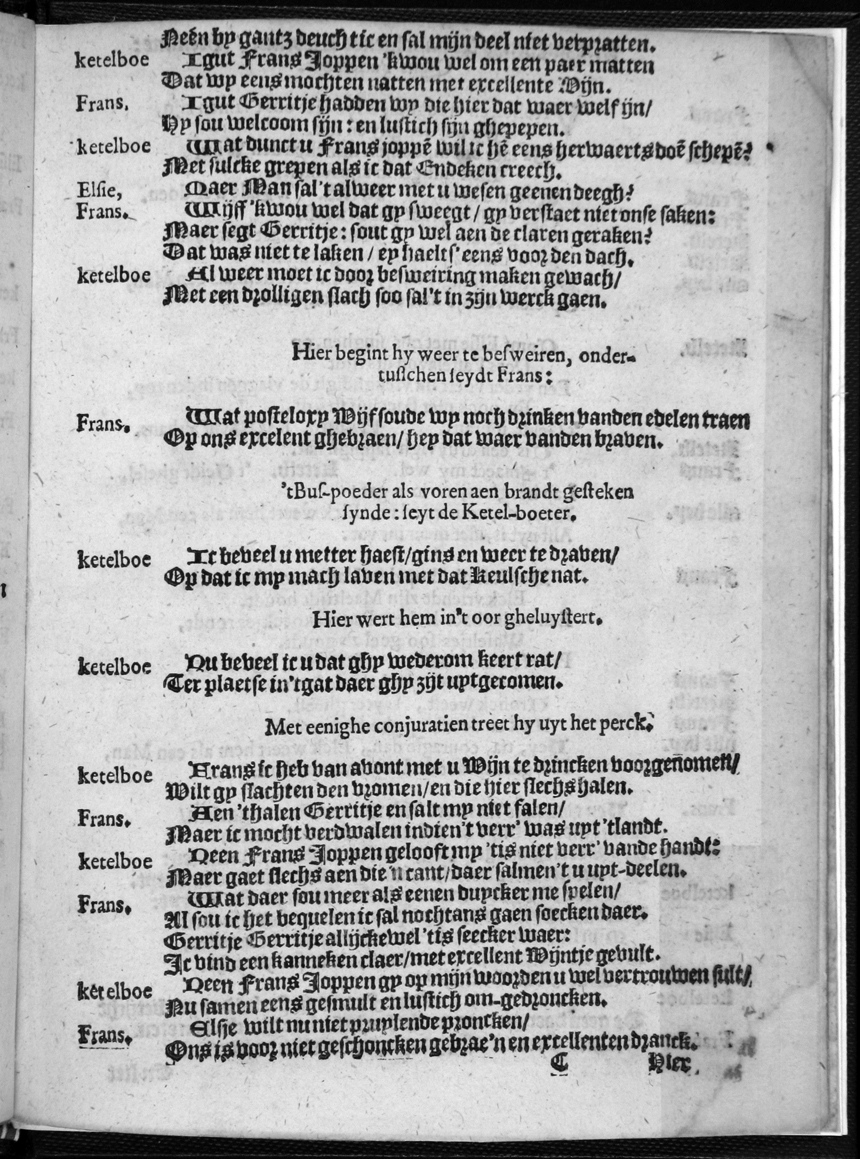 Neén by gantz deuchtic en sal mijn deel niet verpratten.
ketelboe Igut Frans Joppen 'kwou wel om een paer matten
Dat wy eens mochten natten met excellente Wijn.
Frans. Igut Gerritje hadden wy die hier dat waer wel fijn/
Hy sou welcoom sijn: en lustich sijn ghepepen.
ketelboe Wat dunct u Frans joppē wil ic hē eens herwaerts doē schepē?
Met sulcke grepen als ic dat Endeken creech.
Elsie, Maer Man sal't alweer met u wesen geenen deegh?
Frans. Wijff 'kwou wel dat gy sweegt / gy verstaet niet onse saken:
Maer segt Gerritje: sout gy wel aen de claren geraken?
Dat was niet te laken / ey haelts' eens voor den dach.
ketelboe Al weer moet ic door besweiring maken gewach/
Met een drolligen slach soo sal't in zijn werck gaen.
Hier begint hy weer te besweiren, onder-
tusschen seydt Frans:
Frans. Wat posteloxy Wijf soude wy noch drinken vanden edelen traen
Op ons excelent ghebraen/ hey dat waer vanden braven.
'tBus-poeder als voren aen brandt gesteken
synde: seyt de Ketel-boeter.
ketelboe Ic beveel u metter haest/gins en weer te draven/
Op dat ic my mach laven met dat Keulsche nat.
Hier wert hem in't oor gheluystert.
ketelboe Nu beveel ic u dat ghy wederom keert rat/
Ter plaetse in'tgat daer ghy zijt uytgecomen.
Met eenighe conjuratien treet hy uyt het perck.
ketelboe Frans ic heb van avont met u Wijn te drincken voorgenomen/
Wilt gy slachten den vromen/en die hier slechs halen.
Frans. Aen 'thalen Gerritje en salt my niet falen/
Maer ic mocht verdwalen indien't verr' was uyt 'tlandt.
ketelboe Neen Frans Joppen gelooft my 'tis niet verr' vande handt:
Maer gaet slechs aen die 'n cant/daer salmen't u uyt-deelen.
Frans. Wat daer sou meer als eenen duycker me spelen/
Al sou ic het bequelen ic sal nochtans gaen soecken daer.
Gerritje Gerritje allijckewel 'tis seecker waer:
Ic vind een kanneken claer/met excellent Wijntje gevult.
ketelboe Neen Frans Joppen gy op mijn woorden u wel vertrouwen sult/
Nu samen eens gesmult en lustich om-gedroncken.
Frans. Elsje wilt nu niet pruylende proncken/
Ons is voor niet geschoncken gebrae'n en excellenten dranck.
C Hier